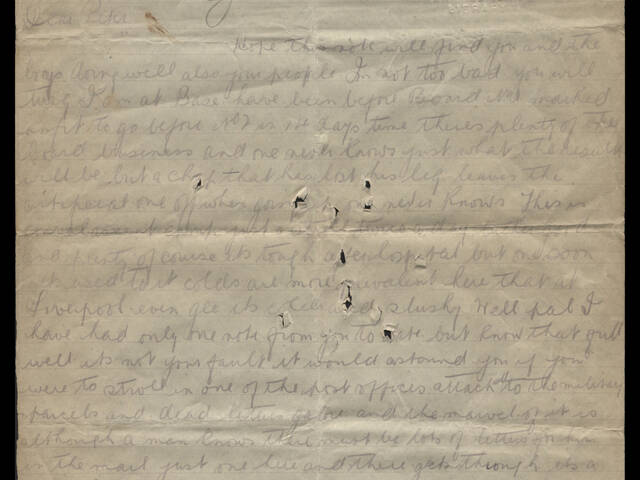 Dear Pete
Hope this note will find you and the
boys doing well also your people Im not too bad you will
I am at Base have been before Board No1 marked
unfit to go before No2 in 14 days time theres plenty of
board business and one never knows just what the result
will be but a chap that has lost his leg leaves the
one never knows This is
plenty of course its tough after hospital but one soon
gets used to it colds are more prevalent here that at
Liverpool even gee its cold and slushy Well pal I
have had only one note from you to date but know that full
well its not your fault it would astound you if you
were to stroll in one of the post offices attach to the military
parcels and dead letters galore and the marvel of it is
although a man knows there must be lots of letters for him
in the mail just one here and there gets through its a